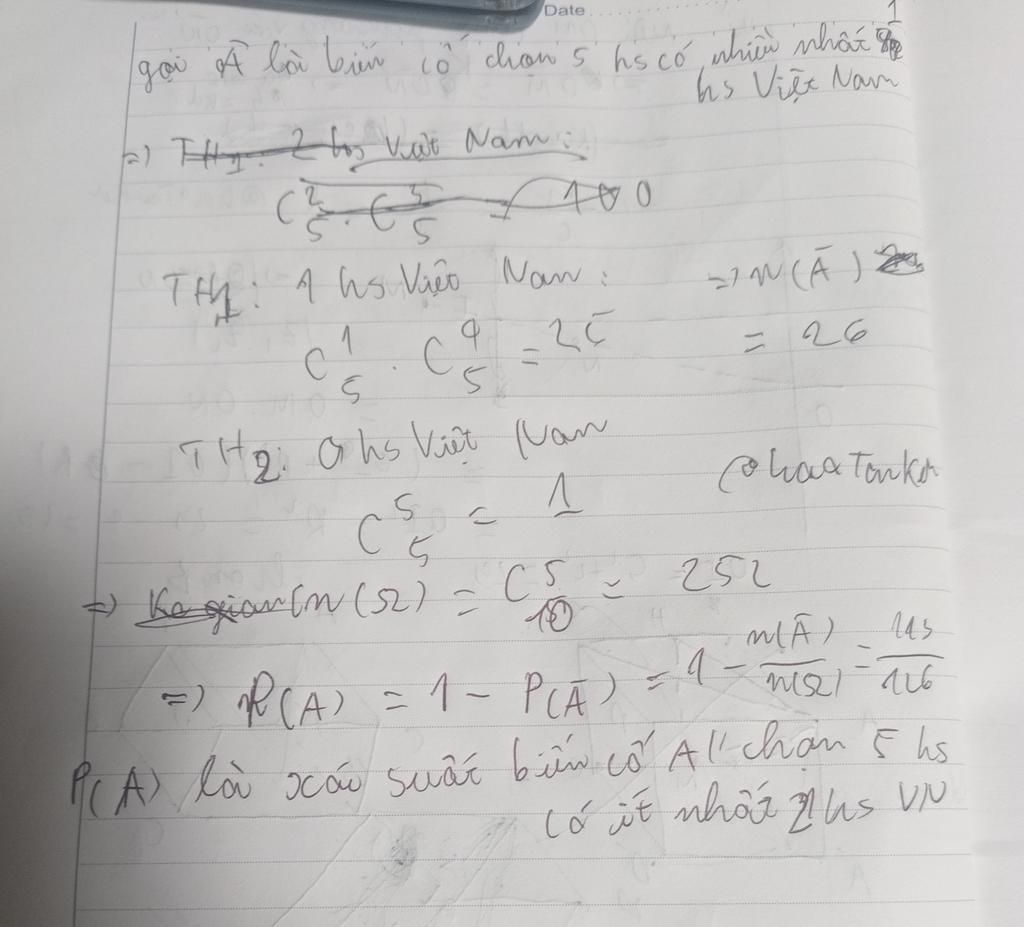 Date
1
gọi Ā là biến cố chọn 5 hs có nhiều nhất
hs Việt Nam
=) TH1: 2 hs Việt Nam:
C²₅ . C³₅ = 100
TH1: 1 hs Việt Nam: =) n(Ā)
C¹₅ . C⁴₅ = 25 = 26
TH2: 0 hs Việt Nam
C⁵₅ = 1
=) n(Ω) = C⁵₁₀ = 252
=) P(A) = 1 - P(Ā) = 1 - n(Ā)/n(Ω) = 113/126
P(A) là xác suất biến cố A "chọn 5 hs
có ít nhất 2 hs VN